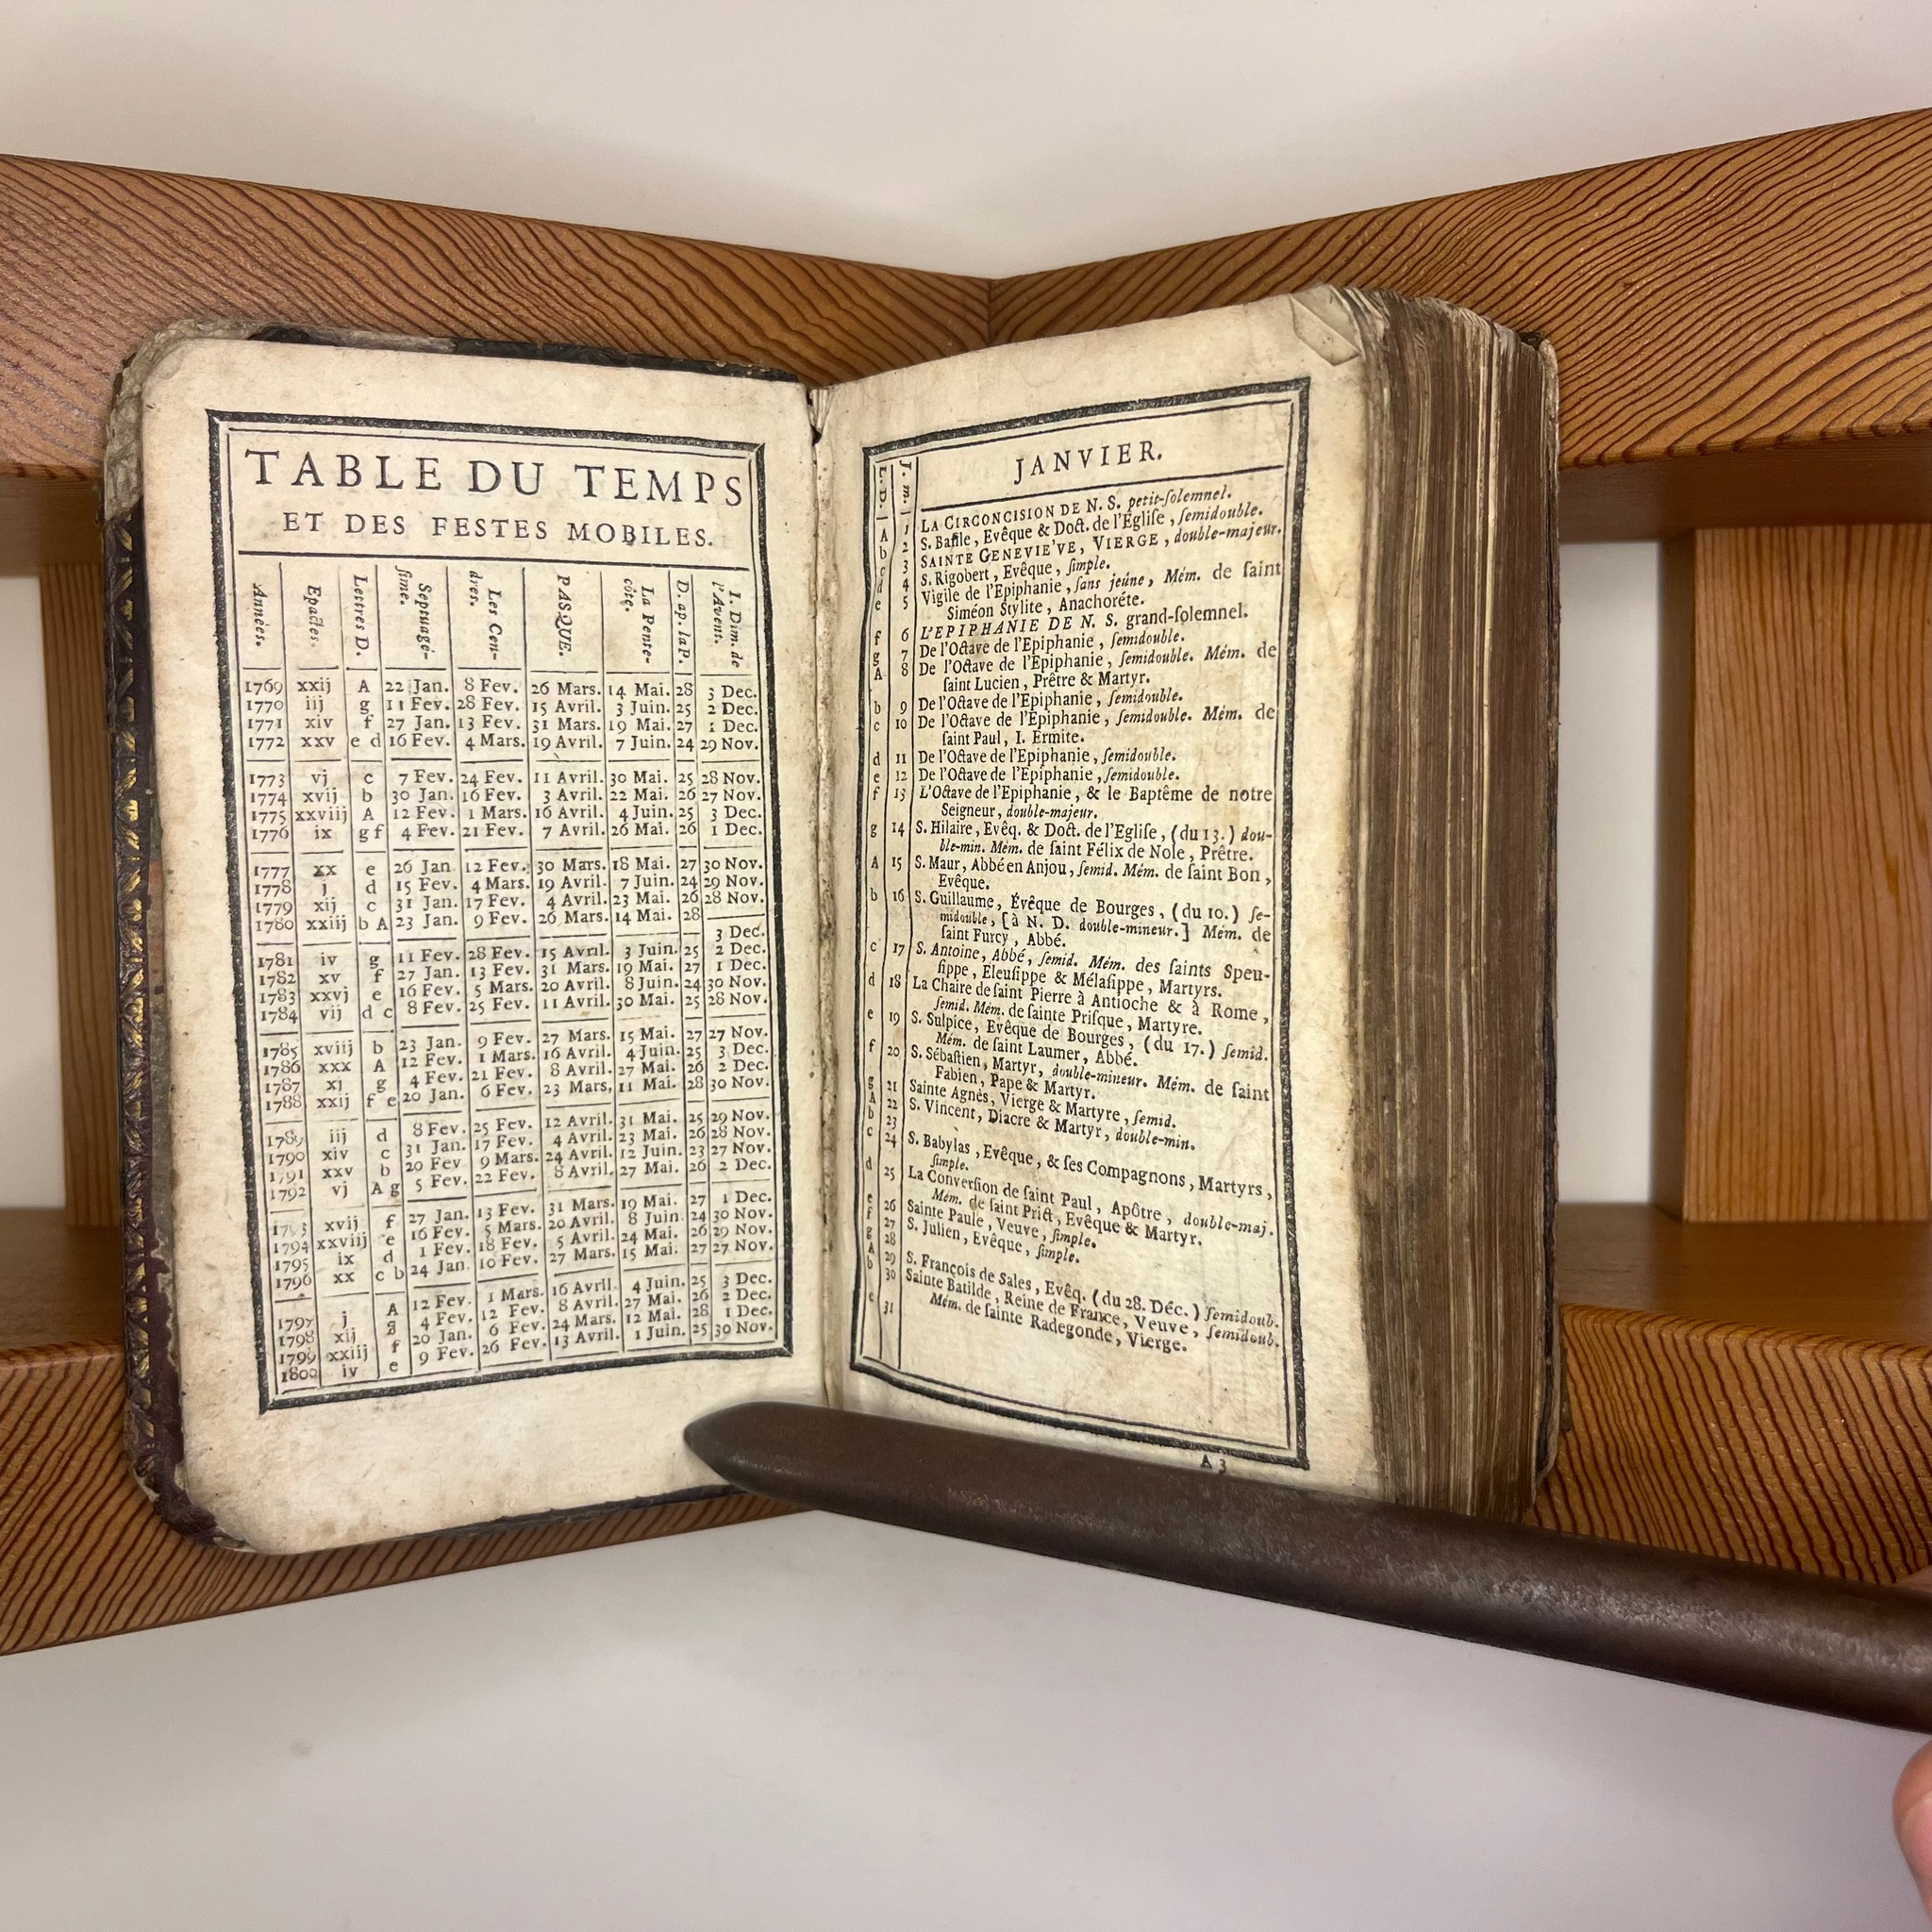 TABLE DU TEMPS
ET DES FESTES MOBILES.
Années. Epactes. Lettres D. Septuagé-sime. Les Cen-dres. PASQUE. La Pente-côte. D. ap. la P. I. Dim. de l'Avent.
1769 xxij A 22 Jan. 8 Fev. 26 Mars. 14 Mai. 28 3 Dec.
1770 iij g 11 Fev. 28 Fev. 15 Avril. 3 Juin. 25 2 Dec.
1771 xiv f 27 Jan. 13 Fev. 31 Mars. 19 Mai. 27 1 Dec.
1772 xxv e d 16 Fev. 4 Mars. 19 Avril. 7 Juin. 24 29 Nov.
1773 vj c 7 Fev. 24 Fev. 11 Avril. 30 Mai. 25 28 Nov.
1774 xvij b 30 Jan. 16 Fev. 3 Avril. 22 Mai. 26 27 Nov.
1775 xxviij A 12 Fev. 1 Mars. 16 Avril. 4 Juin. 25 3 Dec.
1776 ix g f 4 Fev. 21 Fev. 7 Avril. 26 Mai. 26 1 Dec.
1777 xx e 26 Jan. 12 Fev. 30 Mars. 18 Mai. 27 30 Nov.
1778 j d 15 Fev. 4 Mars. 19 Avril. 7 Juin. 24 29 Nov.
1779 xij c 31 Jan. 17 Fev. 4 Avril. 23 Mai. 26 28 Nov.
1780 xxiij b A 23 Jan. 9 Fev. 26 Mars. 14 Mai. 28 3 Dec.
1781 iv g 11 Fev. 28 Fev. 15 Avril. 3 Juin. 25 2 Dec.
1782 xv f 27 Jan. 13 Fev. 31 Mars. 19 Mai. 27 1 Dec.
1783 xxvj e 16 Fev. 5 Mars. 20 Avril. 8 Juin. 24 30 Nov.
1784 vij d c 8 Fev. 25 Fev. 11 Avril. 30 Mai. 25 28 Nov.
1785 xviij b 23 Jan. 9 Fev. 27 Mars. 15 Mai. 27 27 Nov.
1786 xxx A 12 Fev. 1 Mars. 16 Avril. 4 Juin. 25 3 Dec.
1787 xj g 4 Fev. 21 Fev. 8 Avril. 27 Mai. 26 2 Dec.
1788 xxij f e 20 Jan. 6 Fev. 23 Mars. 11 Mai. 28 30 Nov.
1789 iij d 8 Fev. 25 Fev. 12 Avril. 31 Mai. 25 29 Nov.
1790 xiv c 31 Jan. 17 Fev. 4 Avril. 23 Mai. 26 28 Nov.
1791 xxv b 20 Fev. 9 Mars. 24 Avril. 12 Juin. 23 27 Nov.
1792 vj A g 5 Fev. 22 Fev. 8 Avril. 27 Mai. 26 2 Dec.
1793 xvij f 27 Jan. 13 Fev. 31 Mars. 19 Mai. 27 1 Dec.
1794 xxviij e 16 Fev. 5 Mars. 20 Avril. 8 Juin. 24 30 Nov.
1795 ix d 1 Fev. 18 Fev. 5 Avril. 24 Mai. 26 29 Nov.
1796 xx c b 24 Jan. 10 Fev. 27 Mars. 15 Mai. 27 27 Nov.
1797 j A 12 Fev. 1 Mars. 16 Avril. 4 Juin. 25 3 Dec.
1798 xij g 4 Fev. 12 Fev. 8 Avril. 27 Mai. 26 2 Dec.
1799 xxiij f 20 Jan. 6 Fev. 24 Mars. 12 Mai. 28 1 Dec.
1800 iv e 9 Fev. 26 Fev. 13 Avril. 1 Juin. 25 30 Nov.
L. D. J. m. JANVIER.
A 1 LA CIRCONCISION DE N. S. petit-ſolemnel.
b 2 S. Baſile, Evêque & Doct. de l'Egliſe, ſemidouble.
c 3 SAINTE GENEVIE'VE, VIERGE, double-majeur.
d 4 S. Rigobert, Evêque, ſimple.
e 5 Vigile de l'Epiphanie, ſans jeûne, Mém. de ſaint
Siméon Stylite, Anachoréte.
f 6 L'EPIPHANIE DE N. S. grand-ſolemnel.
g 7 De l'Octave de l'Epiphanie, ſemidouble.
A 8 De l'Octave de l'Epiphanie, ſemidouble. Mém. de
ſaint Lucien, Prêtre & Martyr.
b 9 De l'Octave de l'Epiphanie, ſemidouble.
c 10 De l'Octave de l'Epiphanie, ſemidouble. Mém. de
ſaint Paul, I. Ermite.
d 11 De l'Octave de l'Epiphanie, ſemidouble.
e 12 De l'Octave de l'Epiphanie, ſemidouble.
f 13 L'Octave de l'Epiphanie, & le Baptême de notre
Seigneur, double-majeur.
g 14 S. Hilaire, Evêq. & Doct. de l'Egliſe, (du 13.) dou-
ble-min. Mém. de ſaint Félix de Nole, Prêtre.
A 15 S. Maur, Abbé en Anjou, ſemid. Mém. de ſaint Bon,
Evêque.
b 16 S. Guillaume, Évêque de Bourges, (du 10.) ſe-
midouble, [à N. D. double-mineur.] Mém. de
ſaint Furcy, Abbé.
c 17 S. Antoine, Abbé, ſemid. Mém. des ſaints Speu-
ſippe, Eleuſippe & Mélaſippe, Martyrs.
d 18 La Chaire de ſaint Pierre à Antioche & à Rome,
ſemid. Mém. de ſainte Priſque, Martyre.
e 19 S. Sulpice, Evêque de Bourges, (du 17.) ſemid.
Mém. de ſaint Laumer, Abbé.
f 20 S. Sébaſtien, Martyr, double-mineur. Mém. de ſaint
Fabien, Pape & Martyr.
g 21 Sainte Agnès, Vierge & Martyre, ſemid.
A 22 S. Vincent, Diacre & Martyr, double-min.
b 23
c 24 S. Babylas, Evêque, & ſes Compagnons, Martyrs,
ſimple.
d 25 La Converſion de ſaint Paul, Apôtre, double-maj.
Mém. de ſaint Prict, Evêque & Martyr.
e 26 Sainte Paule, Veuve, ſimple.
f 27 S. Julien, Evêque, ſimple.
g 28
A 29 S. François de Sales, Evêq. (du 28. Déc.) ſemidoub.
b 30 Sainte Batilde, Reine de France, Veuve, ſemidoub.
c 31 Mém. de ſainte Radegonde, Vierge.
A 3